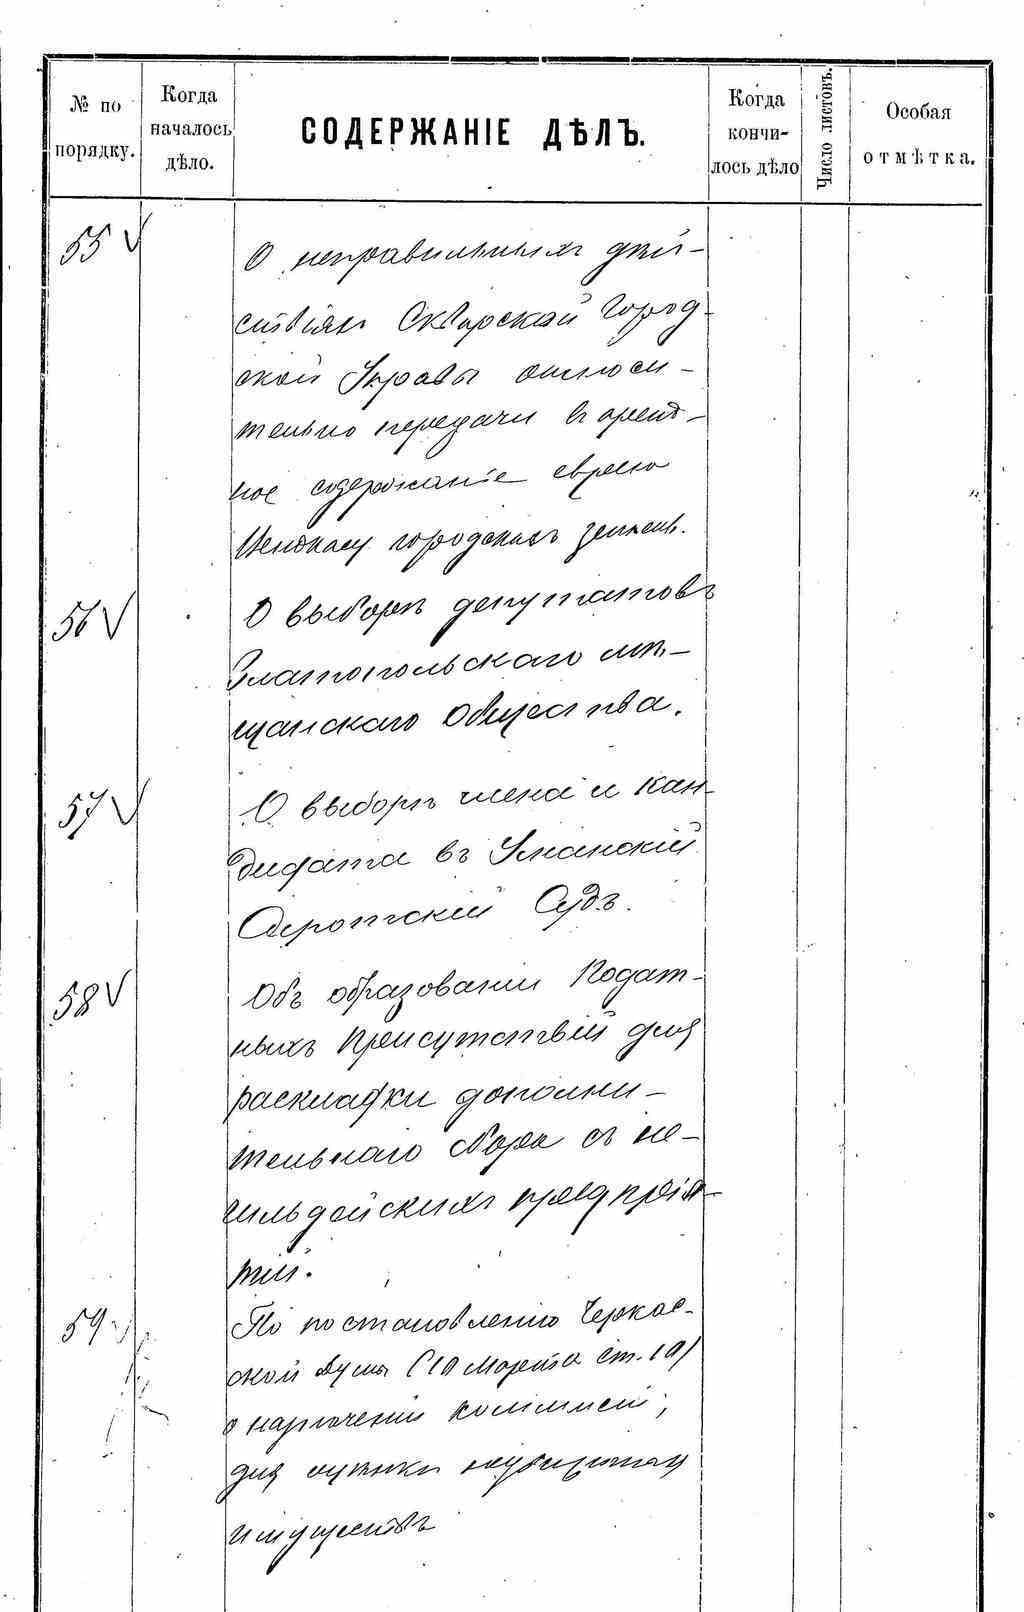 № по порядку.
Когда началось дѣло.
СОДЕРЖАНІЕ ДѢЛЪ.
Когда кончилось дѣло
Число листовъ.
Особая отмѣтка.
55
О неправильныхъ дѣй-
ствіяхъ Сквирской Город-
ской Управы относи-
тельно передачи въ аренд-
ное содержаніе еврею
городскихъ земель.
56
О выборѣ депутатовъ
Златопольскаго мѣ-
щанскаго общества.
57
О выборѣ члена и кан-
дидата въ Уманскій
Сиротскій Судъ.
58
Объ образованіи Подат-
ныхъ Присутствій для
раскладки дополни-
тельнаго сбора съ не-
гильдейскихъ предпрія-
тій.
59
По постановленію Черкас-
ской Думы (10 Марта ст. 10)
о назначеніи коммисіи,
для оцѣнки недвижимыхъ
имуществъ